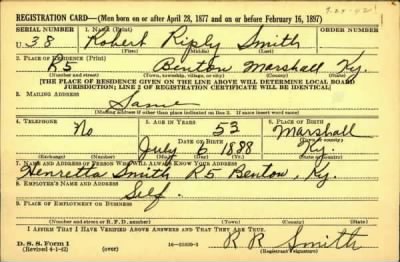 REGISTRATION CARD—(Men born on or after April 28, 1877 and on or before February 16, 1897)
SERIAL NUMBER 1. NAME (Print) ORDER NUMBER
U. 38 Robert Riply Smith
(First) (Middle) (Last)
2. PLACE OF RESIDENCE (Print)
R5 Benton Marshall Ky.
(Number and street) (Town, township, village, or city) (County) (State)
[THE PLACE OF RESIDENCE GIVEN ON THE LINE ABOVE WILL DETERMINE LOCAL BOARD
JURISDICTION; LINE 2 OF REGISTRATION CERTIFICATE WILL BE IDENTICAL]
3. MAILING ADDRESS
Same
[Mailing address if other than place indicated on line 2. If same insert word same]
4. TELEPHONE 5. AGE IN YEARS 6. PLACE OF BIRTH
No 53 Marshall
DATE OF BIRTH (Town or county)
July 6 1888 Ky.
(Exchange) (Number) (Mo.) (Day) (Yr.) (State or country)
7. NAME AND ADDRESS OF PERSON WHO WILL ALWAYS KNOW YOUR ADDRESS
Henretta Smith R5 Benton, Ky.
8. EMPLOYER'S NAME AND ADDRESS
Self.
9. PLACE OF EMPLOYMENT OR BUSINESS
(Number and street or R. F. D. number) (Town) (County) (State)
I AFFIRM THAT I HAVE VERIFIED ABOVE ANSWERS AND THAT THEY ARE TRUE.
D. S. S. Form 1
(Revised 4-1-42) R R Smith
(Registrant's signature)